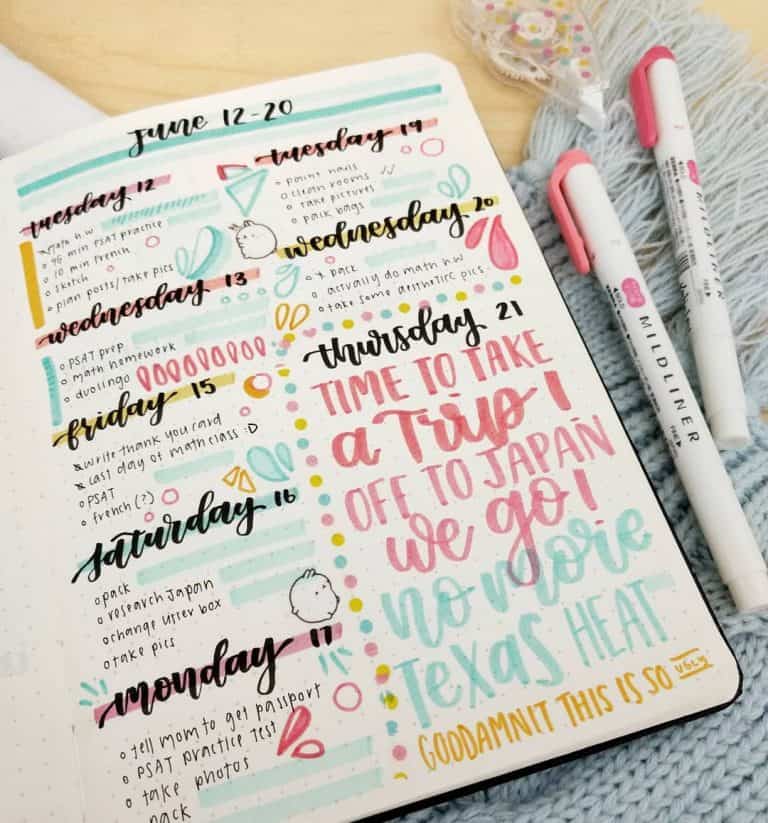 June 12-20
tuesday 12
math h.w
45 min PSAT practice
10 min french
sketch
plan posts/take pics
wednesday 13
PSAT prep
math homework
duolingo
friday 15
write thank you card
last day of math class :D
PSAT
french (?)
saturday 16
pack
research Japan
change litter box
take pics
monday 17
tell mom to get passport
PSAT practice test
take photos
pack
tuesday 19
paint nails
clean rooms
take pictures
pack bags
wednesday 20
pack
actually do math h.w
take some aesthetic pics
thursday 21
TIME TO TAKE
a Trip!
OFF TO JAPAN
we go!
no more
TEXAS HEAT
GODDAMNIT THIS IS SO UGLY
MILDLINER
MILDLINER